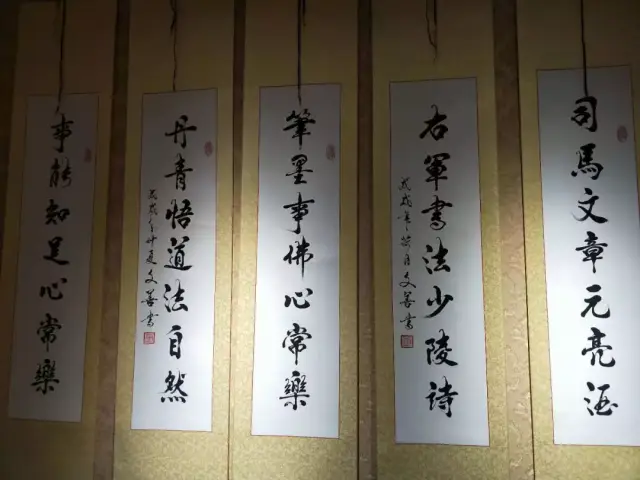 司馬文章元亮酒
右軍書法少陵詩
戊戌年荷月文書
筆墨事佛心常樂
丹青悟道法自然
戊戌年仲夏文書
事能知足心常樂